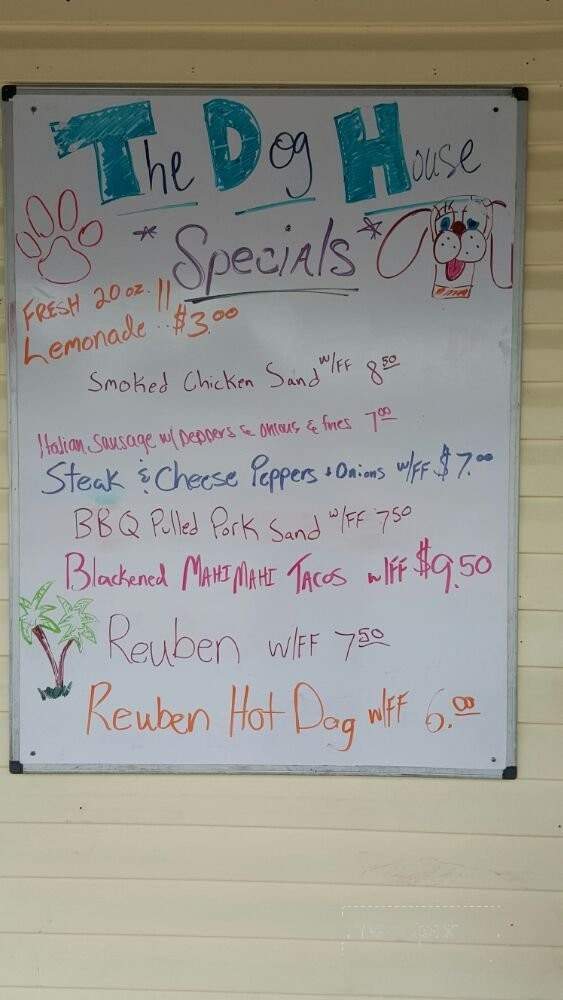 The Dog House
* Specials *
Fresh 20 oz. !!
Lemonade .. $3.00
Smoked Chicken Sand w/FF 8.50
Italian Sausage w/ peppers & onions & fries 7.00
Steak & Cheese Peppers + Onions w/FF $7.00
BBQ Pulled Pork Sand w/FF 7.50
Blackened MAHI MAHI TACOS w/FF $9.50
Reuben w/FF 7.50
Reuben Hot Dag w/FF 6.00